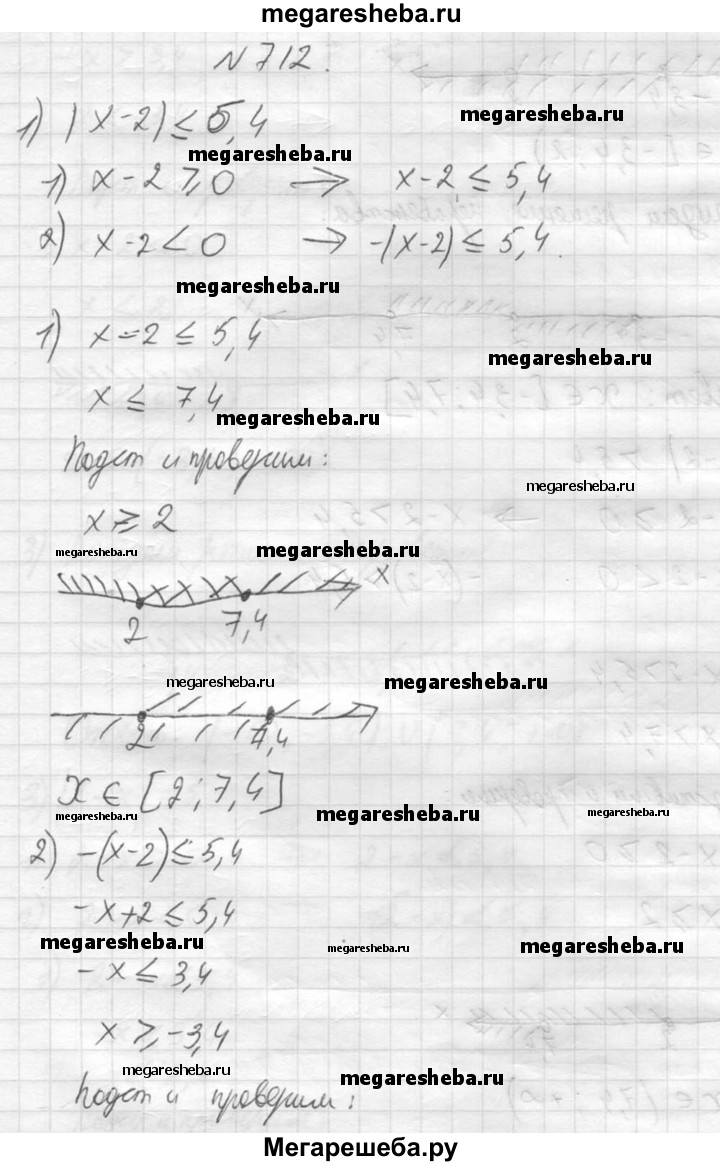 megaresheba.ru
N 712.
1) |x-2| ≤ 5,4
megaresheba.ru
megaresheba.ru
1) x-2 ≥ 0 → x-2 ≤ 5,4
2) x-2 < 0 → -(x-2) ≤ 5,4.
megaresheba.ru
1) x-2 ≤ 5,4
megaresheba.ru
x ≤ 7,4
megaresheba.ru
Подст и проверим:
megaresheba.ru
x ≥ 2
megaresheba.ru
megaresheba.ru
x
2 7,4
megaresheba.ru
megaresheba.ru
2 7,4
x ∈ [2; 7,4]
megaresheba.ru
megaresheba.ru
megaresheba.ru
2) -(x-2) ≤ 5,4
-x+2 ≤ 5,4
megaresheba.ru
megaresheba.ru
megaresheba.ru
-x ≤ 3,4
x ≥ -3,4
megaresheba.ru
megaresheba.ru
Подст и проверим:
Мегарешеба.ру